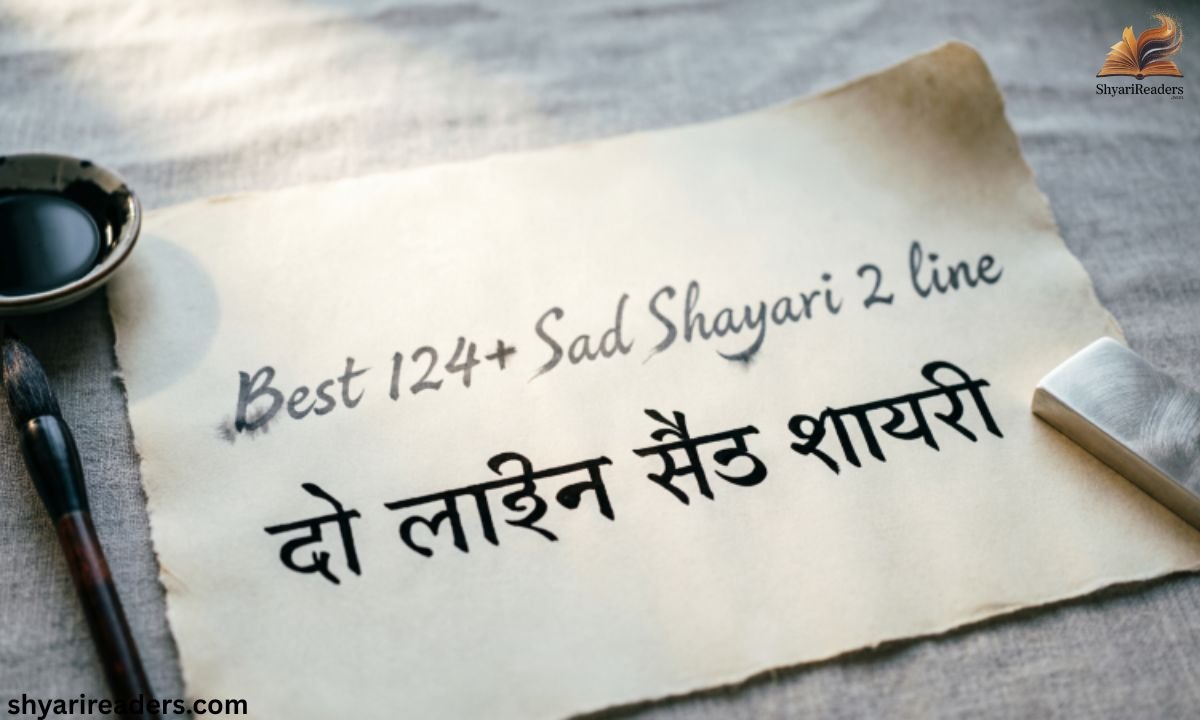 ShyariReaders
.com
Best 124+ Sad Shayari 2 line
दो लाईन सैड शायरी
shyarireaders.com